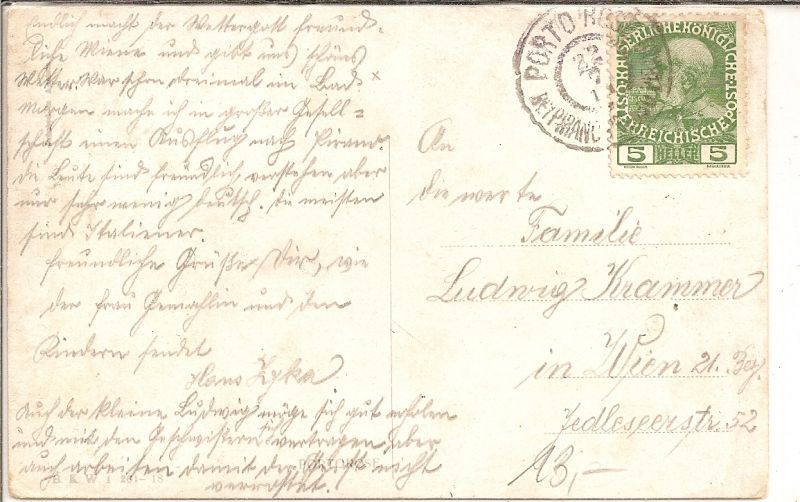 Endlich macht der Wettergott freund-
liche Miene und gibt uns schönes
Wetter. War schon dreimal im Bad
Morgen mache ich in großer Gesell-
schaft einen Ausflug nach Pirano.
die Leute sind freundlich verstehen aber
nur sehr wenig deutsch. die meisten
sind Italiener.
freundliche Grüße Dir, wie
der Frau Gemahlin und den
Kindern sendet
Hans
Auch der kleine Ludwig möge sich gut erholen
und mit den Geschwistern vertragen, aber
auch arbeiten damit der Geist nicht
verrostet.
PORTOROSE
B. K. W. I 261-18
PORTO RO
22
KAISERLICHE KÖNIGLICHE ÖSTERREICHISCHE POST
5 HELLER 5
An
die werte
Familie
Ludwig Krammer
in Wien 21. Bez.
Jedleseerstr. 52
13,-